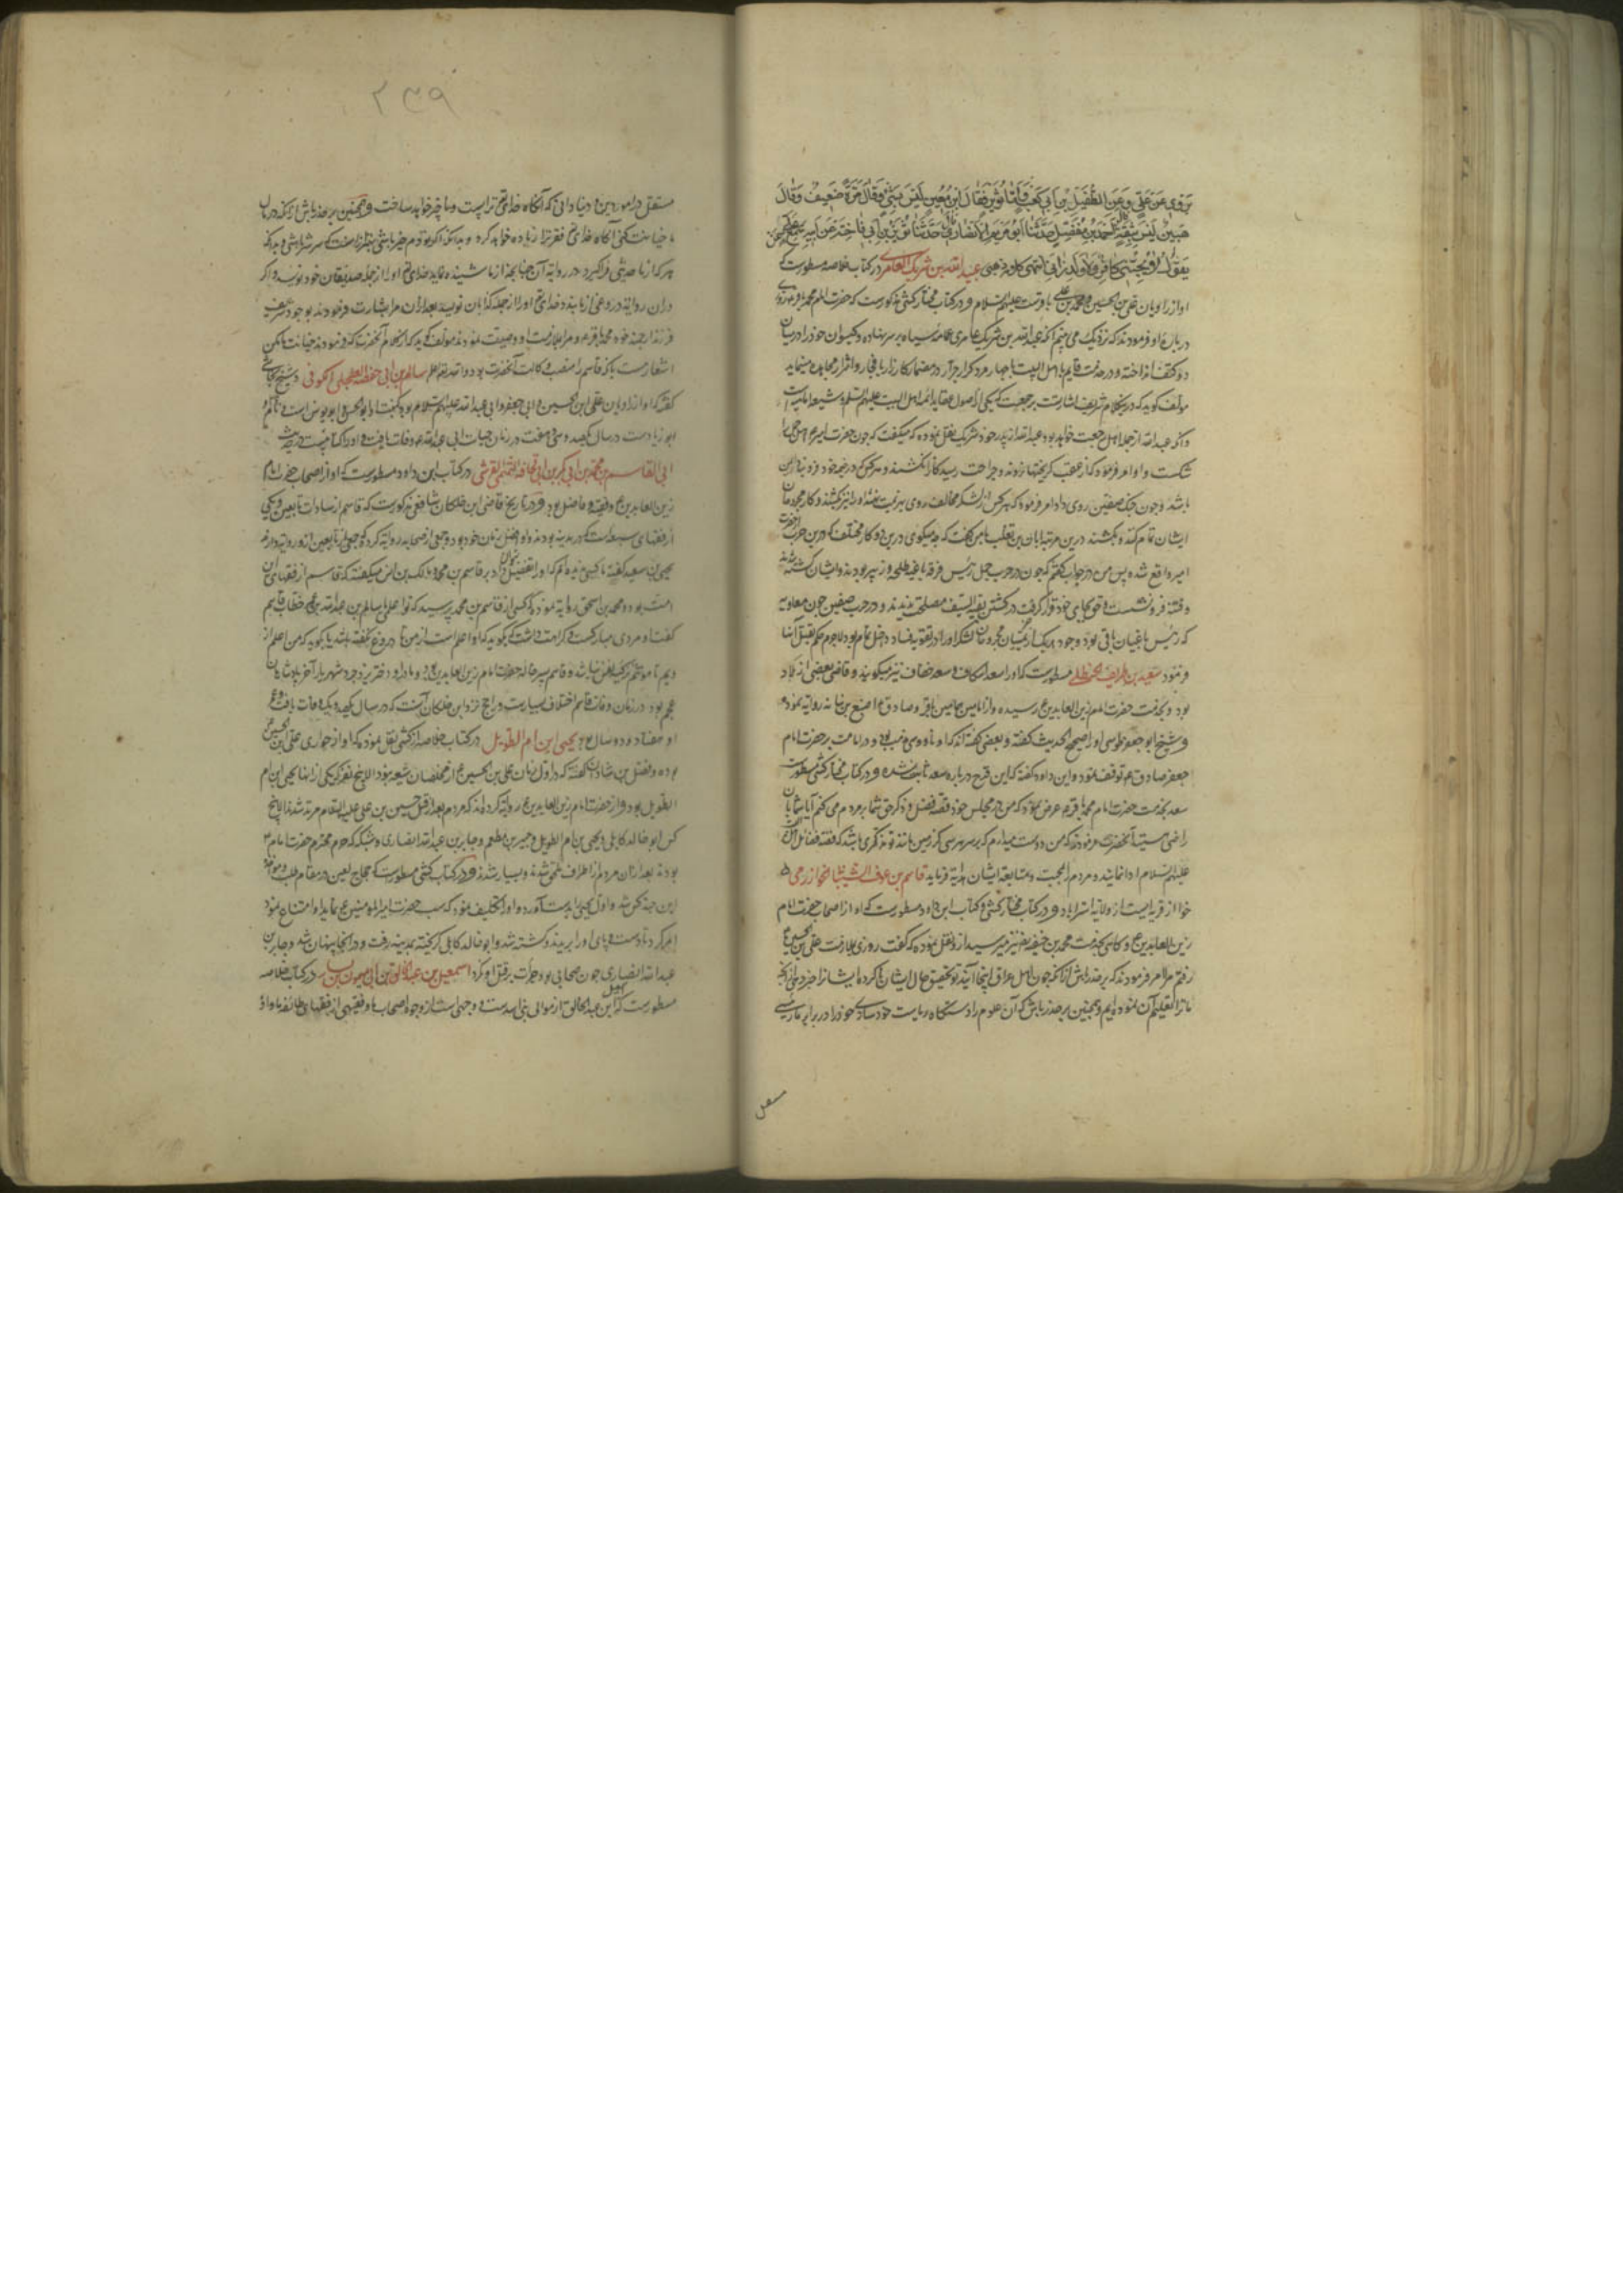 یروی عن علی و عن الطفیل بن ابی کعب فقال ابن معین لیس بشیء و قال مرة ضعیف و قال
لیس بثقة احمد بن مفضل حدثنا ابو مریم الانصاری حدثنا ثویر بن ابی فاختة عن ابیه
یقول لا یحبنی کافر و لا ولد زنا انتهی کلام ذهبی عبد الله بن شریک العامری در کتاب خلاصه مسطورست که
او از راویان علی بن الحسین و محمد بن علی علیهم السلام و در کتاب مختار کشی مذکورست که حضرت امام محمد باقر
درباره او فرمودند که نزدیک می بینم که عبد الله بن شریک عامری عمامه سیاه بر سر نهاده و گیسوان خود را در میان
دو کتف انداخته و در خدمت قایم اهل البیت با چهار مرد کرار جرار در مضمار کارزار با فجار و اشرار مجاهده مینماید
مولف گوید که درین کلام شریف اشارتست برجعت که یکی از اصول عقاید ائمه اهل البیت علیهم السلام و شیعه امامیه است
و اگر عبد الله از جمله اهل رجعت خواهد بود عبد الله از پدر خود شریک نقل نموده که میگفت که چون حضرت امیر اهل جمل را
شکست داد امر فرمود که از عقب گریختها نروند و جراحت رسیدگان را نکشند و هر کس که در خیمه خود فرود
باشد و چون جنگ صفین روی داد امر فرمود که هر کس از لشکر مخالف روی بهزیمت نهد او را نیز بکشند و کار مجروحان
ایشان تمام کنند و بکشند درین مرتبه ابان بن تغلب بامن گفت که چه میگوئی درین دو کار مختلف که درین حرب
امیر واقع شده پس من در جواب گفتم که چون در حرب جمل رئیس فرقه باغیه طلحه و زبیر بودند و ایشان کشته شدند
و فتنه فرو نشست و حق بجای خود قرار گرفت در کشتن بقیة السیف مصلحت ندیدند و در حرب صفین چون معاویه
که رئیس باغیان باقی بود و وجود هر یک از گریختگان و مجروحان لشکر او را در تقویه فساد دخل تمام بود لاجرم حکم بقتل آنها
فرمود سعد بن طریف الحنظلی مسطورست که او را سعد اسکاف و سعد خفاف نیز میگویند و قاضی بعضی از بلاد
بود و بخدمت حضرت امام زین العابدین ع رسیده و از امامین همامین باقر و صادق ع و اصبغ بن نباته روایه نموده
و شیخ ابو جعفر طوسی او را صحیح الحدیث گفته و بعضی گفته اند که او ناووسی مذهب بوده و در امامت بر حضرت امام
جعفر صادق ع توقف نموده و ابن داود گفته که این قدح درباره سعد ثابت نشده و در کتاب مختار کشی مسطورست
سعد بخدمت حضرت امام محمد باقر ع عرض نمود که من در مجلس خود قصه فضل و ذکر حق شما بر مردم می کنم آیا شما بآن
راضی هستید آنحضرت فرمودند که من دوست میدارم که بر سر هر سی گز زمین مانند تو ذکری باشد که قصه فضائل آل
علیهم السلام ادا نمایند و مردم را بمحبت و متابعه ایشان هدایه فرماید قاسم بن عوف الشیبانی خوازرمی
خوا از قریه ایست از ولایه استراباد و در کتاب مختار کشی و کتاب ابن داود مسطورست که او از اصحاب حضرت امام
زین العابدین ع و گاهی بخدمت محمد بن حنفیه نیز میرسید از او نقل نموده که گفت روزی بملازمت علی بن الحسین ع
رفتم مرا امر فرمودند که بر حذر باش از آنکه چون اهل عراق اینجا آیند تو تحقیق حال ایشان ناکرده ایشان را خبر دهی از آنچه
ما ترا تعلیم آن نموده ایم و همچنین بر حذر باش که آن علوم را دستگاه ریاست خود سازی و خود را در برابر ما رئیسی
مستقل
۲۳۹
مستقل در امور دین و دنیا دانی که آنگاه خدای تع ترا پست و ناچیز خواهد ساخت و همچنین بر حذر باش از آنکه در آن
ما خیانت کنی آنگاه خدای تع فقر ترا زیاده خواهد کرد و بدانکه اگر تو دم خیر باشی بهتر از آنست که سر شر باشی و بدانکه
هر که از ما حدیثی فراگیرد در روایه آن چنانچه از ما شنیده نماید خدای تع او را از جمله صدیقان خود نویسد و اگر
در آن روایه دروغی از ما بندد خدای تع او را از جمله کذابان نویسد بعد از آن مرا بشارت فرمودند بوجود شریف
فرزند ارجمند خود محمد باقر ع و مرا بملازمت او وصیت نمودند مولف گوید که از کلام آنحضرت که فرمودند خیانت مکن
اشعارست بآنکه قاسم را منصب وکالت آنحضرت بوده و الله تع اعلم سالم بن ابی حفصه العجلی الکوفی و شیخ نجاشی
گفته که او از راویان علی ابن الحسین و ابی جعفر و ابی عبد الله علیهم السلام بوده کنیت او ابو الحسن و ابو یونس است
ابو زیادست در سال یکصد و سی و هفت در زمان حیات ابی عبد الله ع وفات یافت و او را کتابیست در حدیث
ابی القاسم بن محمد بن ابی بکر بن ابی قحافه التیمی القرشی در کتاب ابن داود مسطورست که او از اصحاب حضرت امام
زین العابدین ع و فقیه و فاضل بود و در تاریخ قاضی ابن خلکان شافعی مذکورست که قاسم از سادات تابعین و یکی
از فقهای سبعه است که در مدینه بودند و او افضل زمان خود بود و جمعی از صحابه روایه کرده و جمعی از تابعین از او روایه دارند
یحیی بن سعید گفته ما کسی ندیده ایم که او را تفضیل توان داد بر قاسم بن محمد و مالک بن انس میگفته که قاسم از فقهای این
امت بود و محمد بن اسحق روایه نموده که کسی از قاسم بن محمد پرسید که تو اعلمی یا سالم بن عبد الله بن عمر خطاب قاسم
گفت او مردی مبارکست و کرامت داشت که بگوید که او اعلم است از من تا دروغ نگفته باشد یا گوید که من اعلم از
ویم تا موهم تزکیه نفس نباشد و قاسم پسر خاله حضرت امام زین العابدین ع بود و مادر او دختر یزدجرد شهریار آخر پادشاهان
عجم بود در زمان وفات قاسم اختلاف بسیارست و راجح نزد ابن خلکان آنست که در سال یکصد و یک وفات یافت و عمر
او هفتاد و دو سال بود یحیی ابن ام الطویل در کتاب خلاصه از کشی نقل نموده که او از حواری علی ابن الحسین
بوده و فضل بن شاذان گفته که در اول زمان علی بن الحسین ع از مخلصان شیعه نبود الا پنج نفر که یکی از آنها یحیی ابن ام
الطویل بود و از حضرت امام زین العابدین ع روایه کرده اند که مردم بعد از قتل حسین بن علی علیه السلام مرتد شدند الا پنج
کس ابو خالد کابلی و یحیی بن ام الطویل و جبیر بن مطعم و جابر بن عبد الله انصاری و شبکه که حرم محترم حضرت امام
بودند بعد از آن مردم از اطراف ملحق شدند و بسیار شدند و در کتاب کشی مسطورست که حجاج لعین در مقام طلب
این چند کس شد و اول یحیی را بدست آورد و او را تکلیف نمود که سب حضرت امیر المومنین ع نماید او امتناع نمود
امر کرد تا دست و پای او را بریدند و کشته شد و ابو خالد کابلی گریخته بمدینه رفت و در آنجا پنهان شد و جابر بن
عبد الله انصاری چون صحابی بود جرأت بر قتل او نکرد اسمعیل بن عبد الخالق بن ابی میمون بن یسار در کتاب خلاصه
مسطورست که اسمعیل بن عبد الخالق از موالی بنی اسدست و وجهی است از وجوه اصحاب ما و فقیهی از فقهای طائفه ما و او